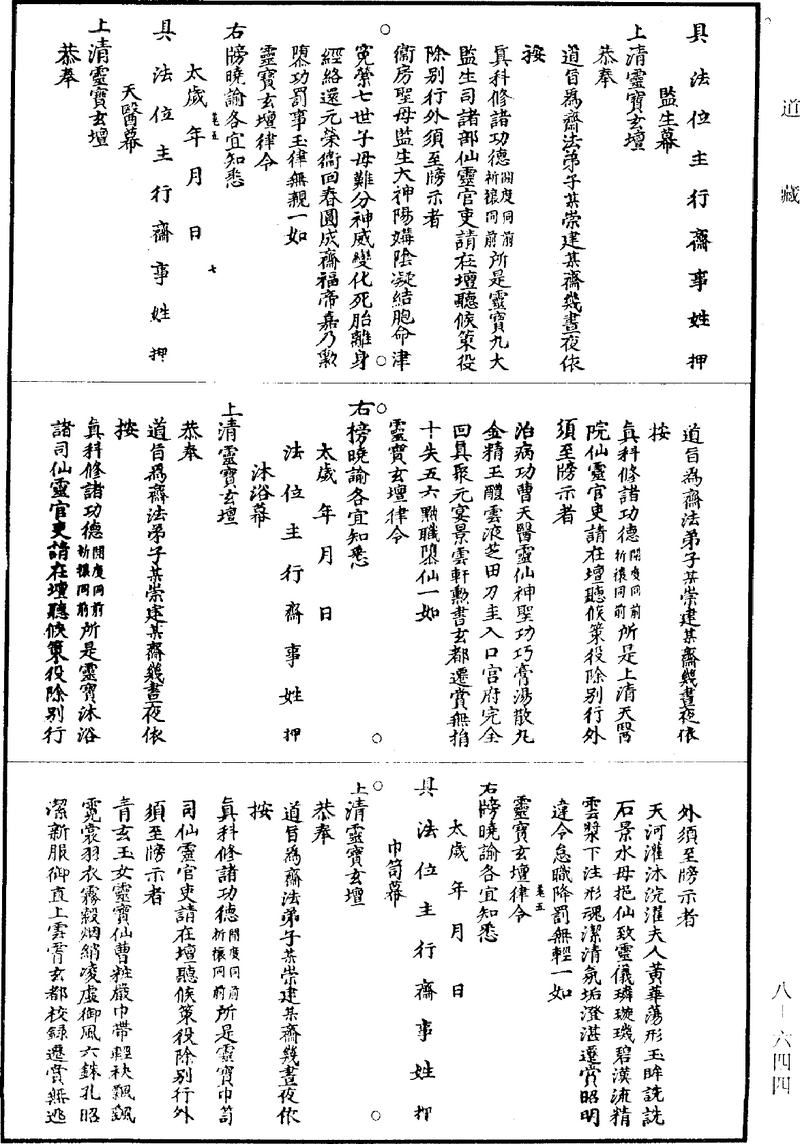 道藏
具法位主行齋事姓 押
監生幕
上清靈寶玄壇
恭奉
道旨為齋法弟子某崇建某齋幾晝夜依
按
真科修諸功德開度同前祈禳同前所是靈寶九大
監生司諸部仙靈官吏請在壇聽候策役
除別行外須至牓示者
衛房聖母監生大神陽媾陰凝結胞命津
冤縈七世子母難分神威變化死胎離身
經絡還元榮衛回春圓成齋福帝嘉乃勳
隳功罰事玉律無親一如
靈寶玄壇律令
右牓曉諭各宜知悉
太歲 年 月 日
卷五 七
具法位主行齋事姓 押
天醫幕
上清靈寶玄壇
恭奉
道旨為齋法弟子某崇建某齋幾晝夜依
按
真科修諸功德開度同前祈禳同前所是上清天醫
院仙靈官吏請在壇聽候策役除別行外
須至牓示者
治病功曹天醫靈仙神聖功巧膏湯散丸
金精玉醴雲液芝田刀圭入口宮府完全
回真聚元宴景雲軒勳書玄都遷賞無捐
十失五六黜職隳仙一如
靈寶玄壇律令
右榜曉諭各宜知悉
太歲 年 月 日
法位主行齋事姓 押
沐浴幕
上清靈寶玄壇
恭奉
道旨為齋法弟子某崇建某齋幾晝夜依
按
真科修諸功德開度同前祈禳同前所是靈寶沐浴
諸司仙靈官吏請在壇聽候策役除別行
外須至牓示者
天河灌沐浣濯夫人黃華蕩形玉眸詵詵
石景水母挹仙致靈儀璘璇璣碧漢流精
雲漿下注形魂潔清氛垢澄湛遷賞昭明
違令怠職降罰無輕一如
卷五
靈寶玄壇律令
右牓曉諭各宜知悉
太歲 年 月 日
具法位主行齋事姓 押
巾笥幕
上清靈寶玄壇
恭奉
道旨為齋法弟子某崇建某齋幾晝夜依
按
真科修諸功德開度同前祈禳同前所是靈寶巾笥
司仙靈官吏請在壇聽候策役除別行外
須至牓示者
青玄玉女靈寶仙曹粧嚴巾帶輕袂飄飄
霓裳羽衣霧縠烟綃凌虛御風六銖孔昭
潔新服御直上雲霄玄都校錄遷賞無逃
八-六四四